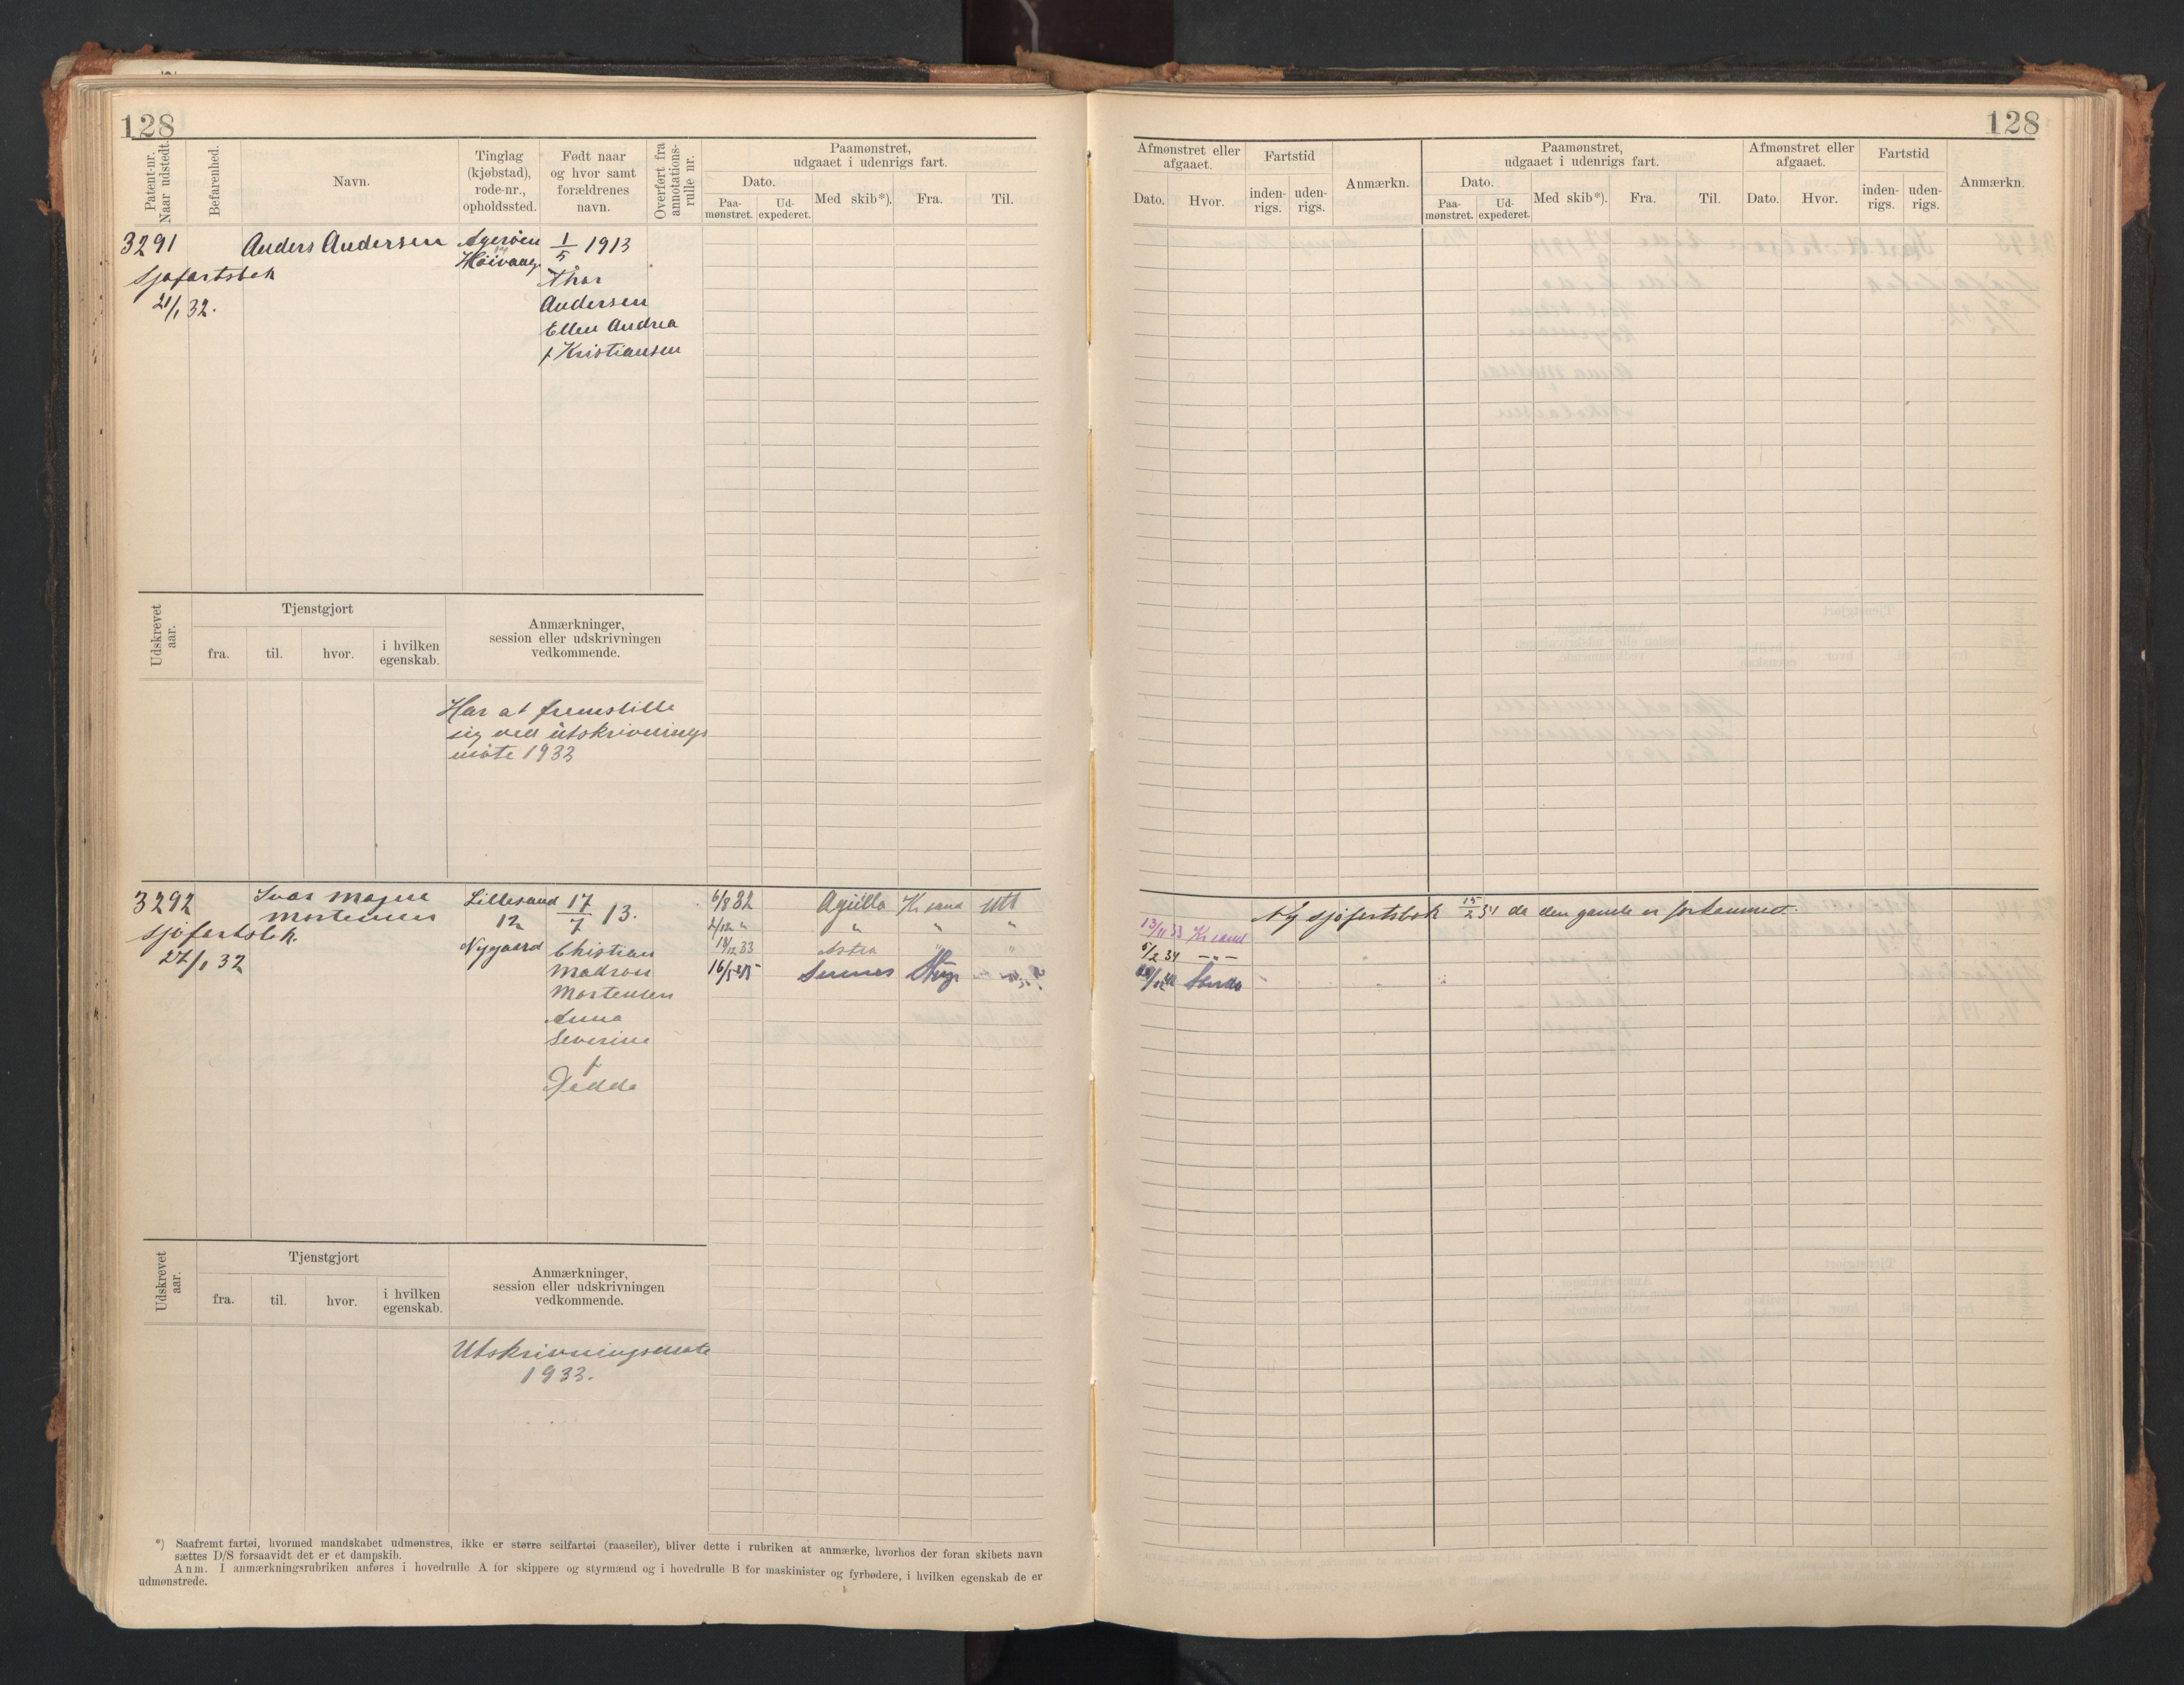 128
Patent-nr. Naar udstedt.
Befarenhed.
Navn.
Tinglag (kjøbstad), rode-nr., opholdssted.
Født naar og hvor samt forældrenes navn.
Overført fra annotations-rulle nr.
Paamønstret, udgaaet i udenrigs fart.
Dato.
Paa-mønstret.
Ud-expederet.
Med skib*).
Fra.
Til.
3291
Sjøfartsbok
21/1 32.
Anders Andersen
Agerøen
Høivaag
1/5 1913
Thor
Andersen
Ellen Andrea
f Kristiansen
Udskrevet aar.
Tjenstgjort
fra.
til.
hvor.
i hvilken egenskab.
Anmærkninger,
session eller udskrivningen
vedkommende.
Har at fremstille
sig ved utskrivnings
møte 1933
3292
Sjøfartsbok.
27/1 32
Ivar Magne
Mortensen
Lillesand
12
Nygaard
17/7 13.
Christian
Madson
Mortensen
Anna
Severine
f
Jedda
6/8 32 Agilla Kr sand Utl
2/12 " " " "
14/12 33 Astra " "
16/5
Udskrevet aar.
Tjenstgjort
fra.
til.
hvor.
i hvilken egenskab.
Anmærkninger,
session eller udskrivningen
vedkommende.
Utskrivningsmøte
1933.
*) Saafremt fartøi, hvormed mandskabet udmønstres, ikke er større seilfartøi (raaseiler), bliver dette i rubriken at anmærke, hvorhos der foran skibets navn
sættes D/S forsaavidt det er et dampskib.
Anm. I anmærkningsrubriken anføres i hovedrulle A for skippere og styrmænd og i hovedrulle B for maskinister og fyrbødere, i hvilken egenskab de er
udmønstrede.
128
Afmønstret eller afgaaet.
Dato.
Hvor.
Fartstid
inden-rigs.
uden-rigs.
Anmærkn.
Paamønstret,
udgaaet i udenrigs fart.
Dato.
Paa-mønstret.
Ud-expederet.
Med skib*).
Fra.
Til.
Afmønstret eller afgaaet.
Dato.
Hvor.
Fartstid
inden-rigs.
uden-rigs.
Anmærkn.
Ny sjøfartsbok 15/2 34 da den gamle er forkommet.
13/11 33 Kr sand
5/2 34 -"-